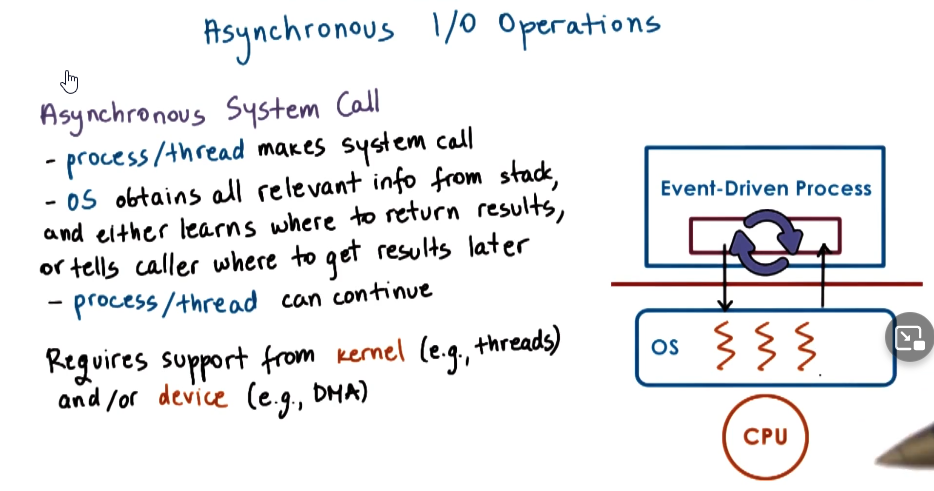 Asynchronous I/O Operations
Asynchronous System Call
- process/thread makes system call
- OS obtains all relevant info from stack,
and either learns where to return results,
or tells caller where to get results later
- process/thread can continue
Requires support from kernel (e.g., threads)
and/or device (e.g., DMA)
Event-Driven Process
OS
CPU